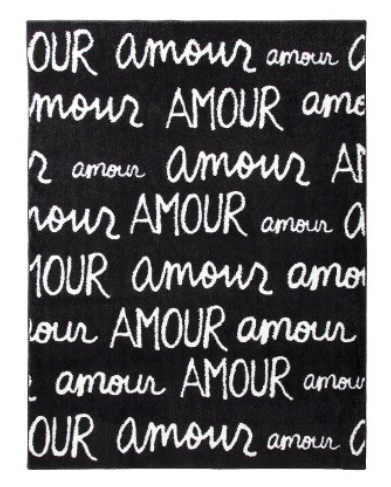 OUR amour amour a
mour AMOUR amo
r amour amour AM
mour AMOUR amour a
MOUR amour amou
our AMOUR amour
amour AMOUR amour
OUR amour amour a